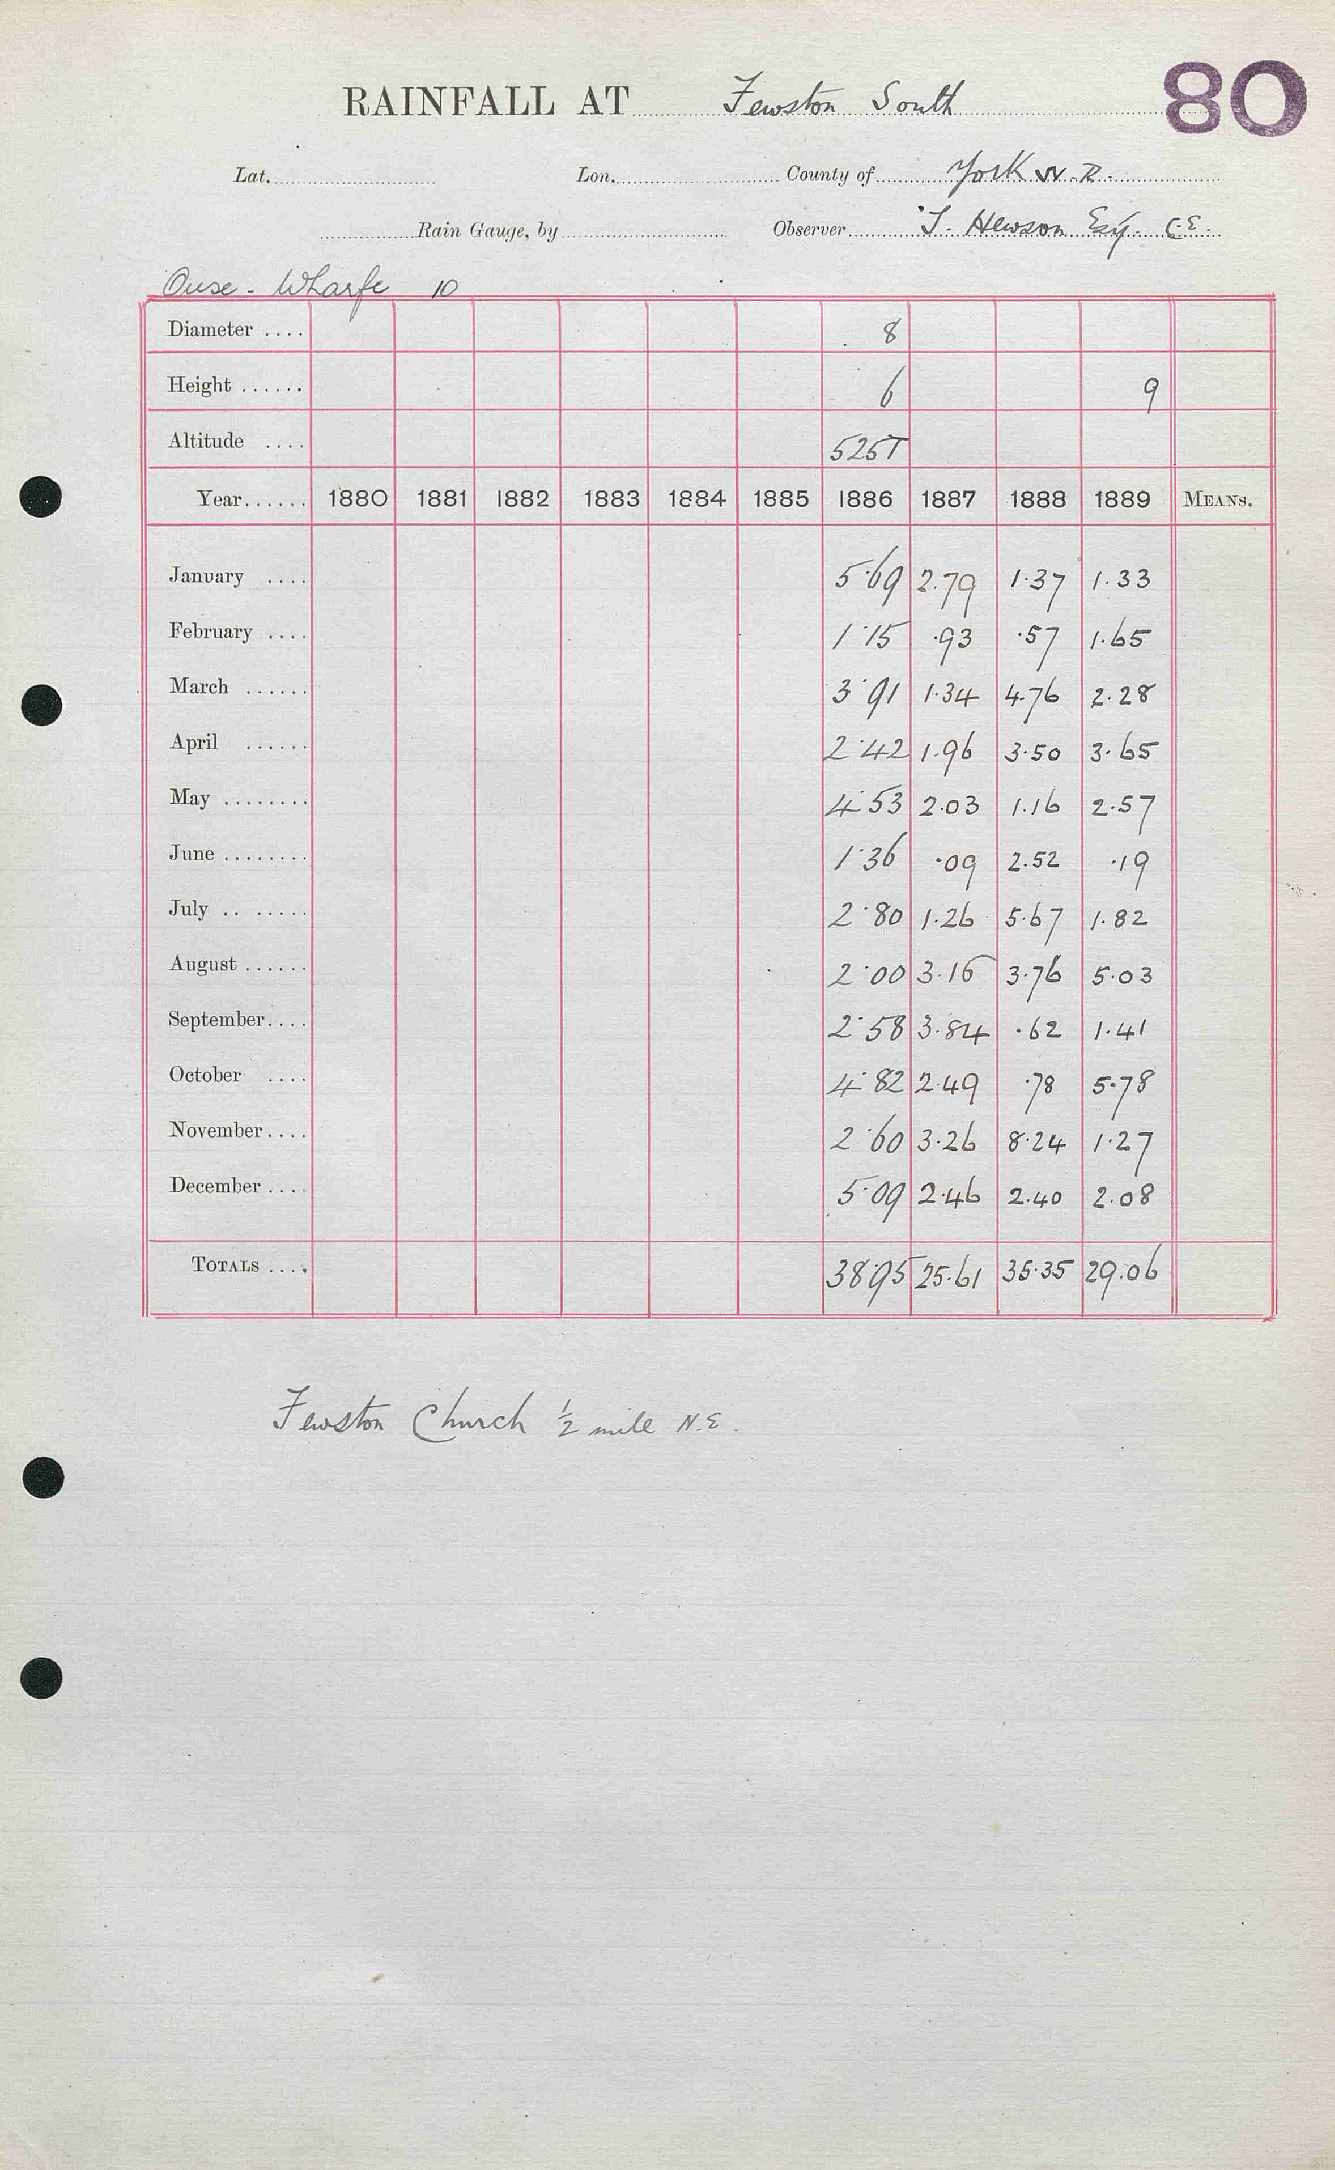 80
RAINFALL AT Fewston South
Lat. Lon. County of York W.R.
Rain Gauge, by Observer T. Hewson Esq. C.E.
Ouse - Wharfe 10
Diameter .... 8
Height ...... 6 9
Altitude .... 525T
Year ...... 1880 1881 1882 1883 1884 1885 1886 1887 1888 1889 MEANS.
January .... 5.69 2.79 1.37 1.33
February .... 1.15 .93 .57 1.65
March ...... 3.91 1.34 4.76 2.28
April ...... 2.42 1.96 3.50 3.65
May ........ 4.53 2.03 1.16 2.57
June ........ 1.36 .09 2.52 .19
July .. ...... 2.80 1.26 5.67 1.82
August ...... 2.00 3.16 3.76 5.03
September .... 2.58 3.84 .62 1.41
October .... 4.82 2.49 .78 5.78
November .... 2.60 3.26 8.24 1.27
December .... 5.09 2.46 2.40 2.08
TOTALS .... 38.95 25.61 35.35 29.06
Fewston Church ½ mile N.E.